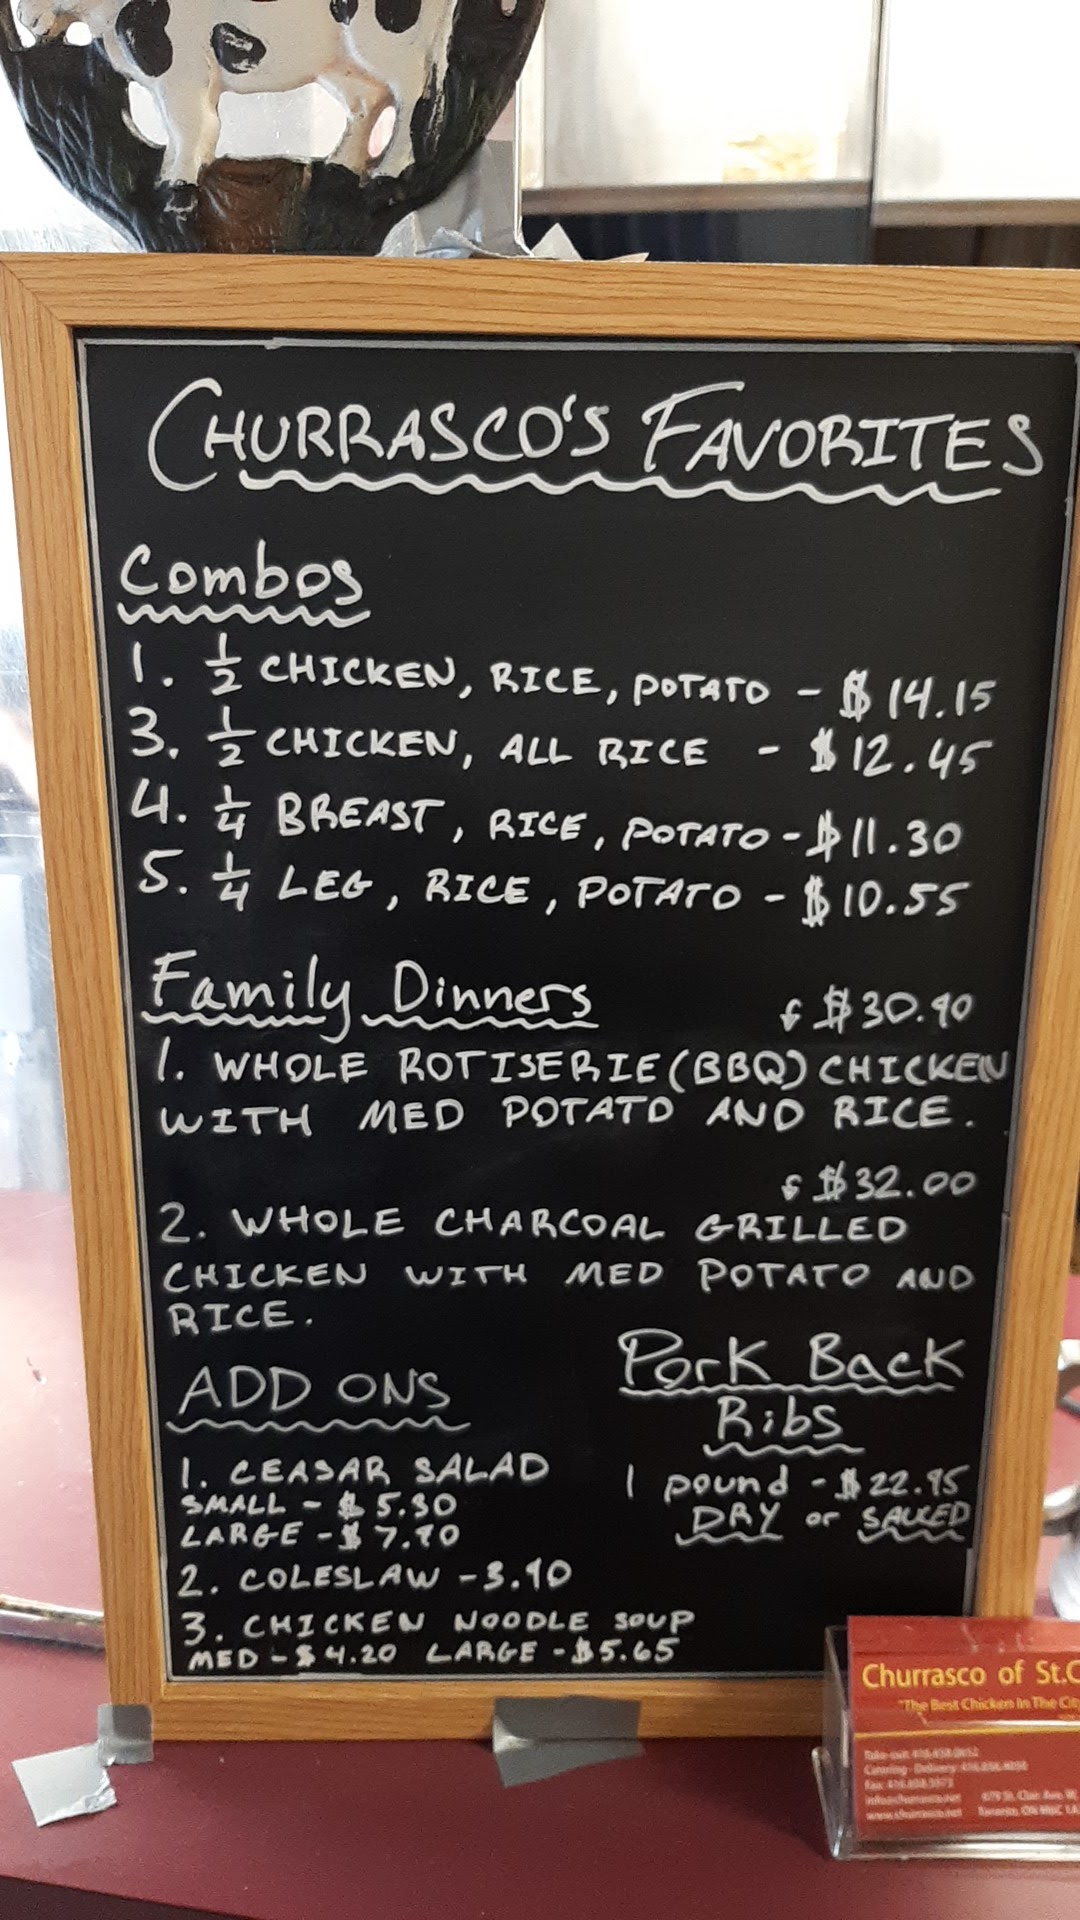 CHURRASCO'S FAVORITES
Combos
1. ½ CHICKEN, RICE, POTATO - $14.15
3. ½ CHICKEN, ALL RICE - $12.45
4. ¼ BREAST, RICE, POTATO - $11.30
5. ¼ LEG, RICE, POTATO - $10.55
Family Dinners
$30.90
1. WHOLE ROTISERIE (BBQ) CHICKEN
WITH MED POTATO AND RICE.
$32.00
2. WHOLE CHARCOAL GRILLED
CHICKEN WITH MED POTATO AND
RICE.
ADD ONS
1. CEASAR SALAD
SMALL - $5.30
LARGE - $7.90
2. COLESLAW - 3.90
3. CHICKEN NOODLE SOUP
MED - $4.20 LARGE - $5.65
Pork Back
Ribs
1 pound - $22.95
DRY or SAUCED
Churrasco of St.C
"The Best Chicken In The City
Take-out:
Catering - Delivery:
Fax:
www.churrasco.net Toronto, ON